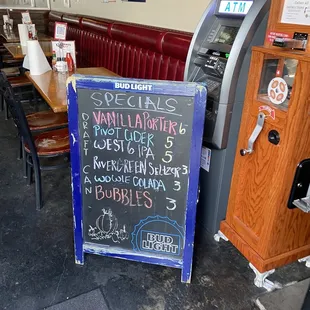 ATM
BUD LIGHT
SPECIALS
DRAFT
VANILLA PORTER 6
PIVOT CIDER 5
WEST 6 IPA 5
CAN
RIVERGREEN SELTZER 3
WDWLE COLADA 3
BUBBLES 3
BUD
LIGHT